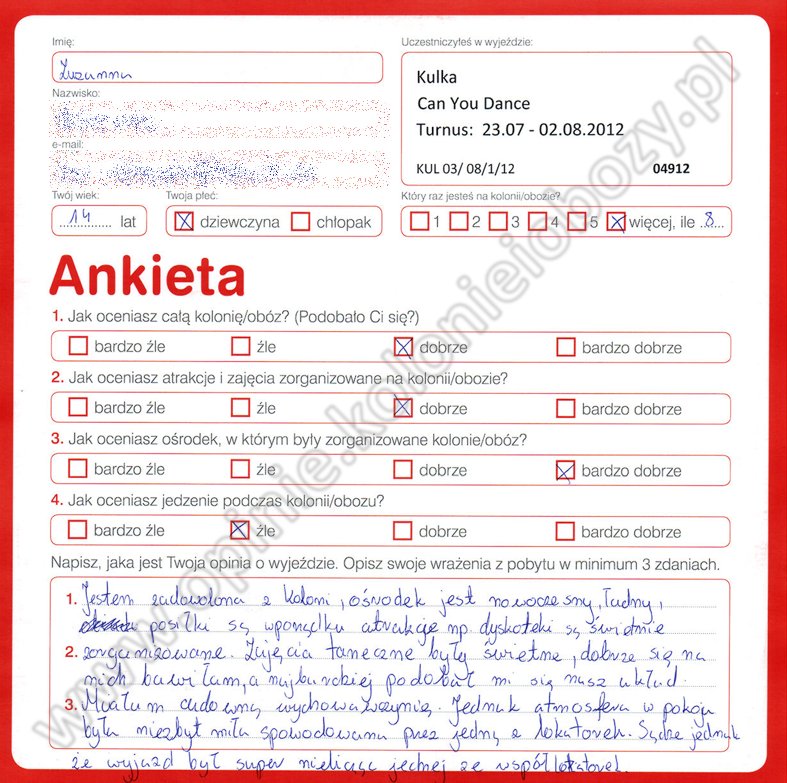 Imię:
Zuzanna
Nazwisko:
e-mail:
Twój wiek:
14 lat
Twoja płeć:
dziewczyna chłopak
Uczestniczyłeś w wyjeździe:
Kulka
Can You Dance
Turnus: 23.07 - 02.08.2012
KUL 03/ 08/1/12 04912
Który raz jesteś na kolonii/obozie?
1 2 3 4 5 więcej, ile 8
Ankieta
1. Jak oceniasz całą kolonię/obóz? (Podobało Ci się?)
bardzo źle źle dobrze bardzo dobrze
2. Jak oceniasz atrakcje i zajęcia zorganizowane na kolonii/obozie?
bardzo źle źle dobrze bardzo dobrze
3. Jak oceniasz ośrodek, w którym były zorganizowane kolonie/obóz?
bardzo źle źle dobrze bardzo dobrze
4. Jak oceniasz jedzenie podczas kolonii/obozu?
bardzo źle źle dobrze bardzo dobrze
Napisz, jaka jest Twoja opinia o wyjeździe. Opisz swoje wrażenia z pobytu w minimum 3 zdaniach.
1. Jestem zadowolona z koloni, ośrodek jest nowoczesny, ładny,
posiłki są wporządku atrakcje np. dyskoteki są świetnie
2. zorganizowane. Zajęcia taneczne były świetne, dobrze się na
nich bawiłam, a najbardziej podobał mi się nasz układ.
3. Miałam cudowną wychowawczynię. Jednak atmosfera w pokoju
była niezbyt miła spowodowana przez jedną z lokatorek. Sądzę jednak
że wyjazd był super nielicząc jednej ze współlokatorek!
www.opinie.kolonieiobozy.pl